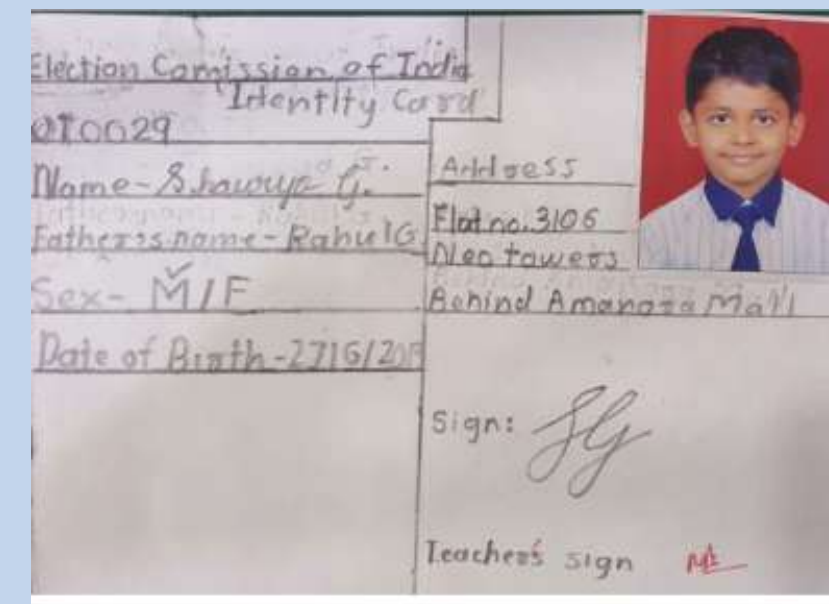 Election Comission of India
Identity Card
0T0029
Name - Shourya G.
Father's name - Rahul G.
Sex - M / F
Date of Birth - 27/6/201
Address
Flat no. 3106
Neo towers
Behind Amanora Mall
Sign: SG
Teacher's sign